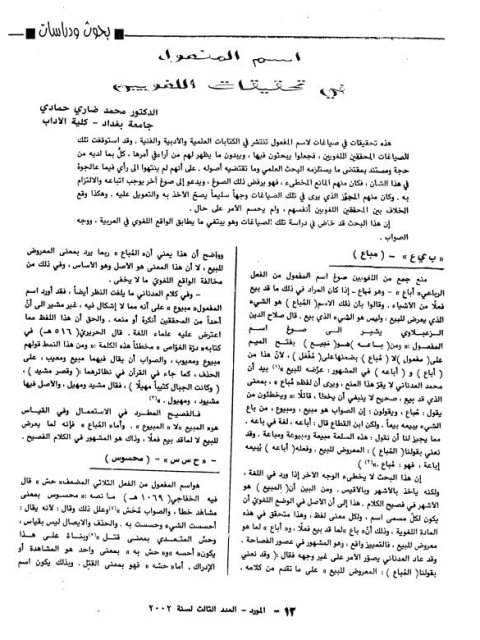 بحوث ودراسات
اسم المفعول
في تحقيقات اللغويين
الدكتور محمد ضاري حمادي
جامعة بغداد - كلية الآداب
هذه تحقيقات في صياغات لاسم المفعول تنتشر في الكتابات العلمية والأدبية والفنية . وقد استوقفت تلك
الصياغات المحققين اللغويين ، فجعلوا يبحثون فيها ، ويبدون ما يظهر لهم من آراء في أمرها ، كلٌّ بما لديه من
حجة ومستند بمقتضى ما يستلزمه البحث العلمي وما تقتضيه أصوله . على أنهم لم ينتهوا الى رأي فيما عالجوهُ
في هذا الشأن ، فكان منهم المانع المخطىء ، فهو يرفض ذلك الصوغ ، ويدعو إلى صوغ آخر يوجب اتباعه والالتزام
به . وكان منهم المجوّز الذي يرى في تلك الصياغات وجهاً سليماً يصحّ الأخذ به والتعويل عليه . وهكذا وقع
الخلاف بين المحققين اللغويين أنفسهم ، ولم يحسم الأمر على حال .
إن هذا البحث قد خاض في دراسة تلك الصياغات وهو يبتغي ما يطابق الواقع اللغوي في العربية ، ووجه
الصواب .
« ب ي ع » - ( مباع )
منع جمع من اللغويين صوغ اسم المفعول من الفعل
الرباعي « أباع » - وهو مُباع - إذا كان المراد في ذلك ما قد بيع
فعلًا من الأشياء . وقالوا بأن ذلك الاسم ( المُباع ) هو الشيء
الذي يعرض للبيع ، وليس هو الشيء الذي بيع . قال صلاح الدين
الزعبلاوي يشير الى صوغ اسم
المفعول : « ومن ( باعه ) هو ( مبيع ) بفتح الميم
على ( مفعول ) لا ( مُباع ) بضمها على ( مُفعَل ) ، لأنّ هذا من
( أباع ) و ( أباعه ) في المشهور : عرّضه للبيع » (١) بيد أن
محمد العدناني لا يقرّ هذا المنع ، ويرى أن لفظ « مُباع » ، بمعنى
الذي قد بيع ، صحيح لا ينبغي أن يخطّأ ، قائلًا : « ويخطئون من
يقول : مُباع ، ويقولون : إن الصواب هو مبيع ، ومبيوع ، من باع
الشيء يبيعه بيعاً . ولكن ابن القطاع قال : أباعه ، لغة في باعه .
مما يجيز لنا أن نقول : هذه السلعة مبيعة ومبيوعة ومباعة . وقد
تعني بقولنا ( المُباع ) : المعروض للبيع . وفعله ( أباعه ) يُبيعه
إباعة ، فهو : مُباع . » (٢)
إن هذا البحث لا يخطىء الوجه الآخر إذا ورد في اللغة .
ولكنه ياخذ بالأشهر وبالأقيس . ومن البين أن ( المبيع ) هو
الأشهر في فصيح الكلام . هذا إلى أن الأصل في الوضع اللغويّ أن
يكون لكلّ مسمى اسم ، ولكل معنى لفظ ، وهذا متحقق في هذه
المادة اللغوية . وذلك أنّه « باع » لما قد بيع فعلًا ، و« أباع » لما هو
معروض للبيع ، فالتمييز واقع ، وهو المشهور في عصور الفصاحة .
وقد عاد العدناني يصوّر الأمر على غير وجهه فقال : « وقد تعني
بقولنا ( المُباع ) : المعروض للبيع » على ما تقدم من كلامه .
وواضح أن هذا يعني أن « المُباع » ربما يرد بمعنى المعروض
للبيع ، لا أن هذا المعنى هو الأصل وهو الأساس ، وفي ذلك من
مخالفة الواقع اللغوي ما لا يخفى .
- وفي كلام العدناني ما يلفت النظر أيضاً ، فقد أورد اسم
المفعول « مبيوع » على أنه مما لا إشكال فيه ، غير مشير الى أنّ
أحداً من المحققين أنكرهُ أو منعه . والحق أن هذا اللفظ مما
اعترض عليه علماء اللغة . قال الحريري ( ٥١٦ هـ ) في
كتابه « درّة الغوّاص » مخطئاً هذه الكلمة : « ومن هذا النمط قولهم
مبيوع ومعيوب ، والصواب أن يقال فيهما مبيع ومعيب ، على
الحذف ، كما جاء في القرآن في نظائرهما : ( وقصر مشيد ) ،
( وكانت الجبال كثيباً مهيلًا ) ، فقال مشيد ومهيل ، والأصل فيها
مشيود ، ومهيول . »
فالفصيح المطرد في الاستعمال وفي القياس
هو « المبيع » لا « المبيوع » . وأما « المُباع » فإنه لما يعرض
للبيع لا لما قد بيع فعلًا ، وذاك هو المشهور في الكلام الفصيح .
« ح س س » - ( محسوس )
هو اسم المفعول من الفعل الثلاثي المضعف « حسّ » قال
فيه الخفاجي ( ١٠٦٩ هـ ) ما نصه : « محسوس بمعنى
مشاهَد خطأ ، والصواب مُحَسّ » وعلل ذلك وقال : لأنه يقال :
أحسست الشيء وحسست به . والحذف والايصال ليس بقياس ،
وحسّ المتعدي بمعنى قتل » وبناءً على هذا
يكون « أحسه » و« حسّ به » بمعنى واحد هو المشاهدة أو
الإدراك . أما « حسّه » فهو بمعنى القتل . وبذلك يكون اسم
١٣ - المورد - العدد الثالث لسنة ٢٠٠٢